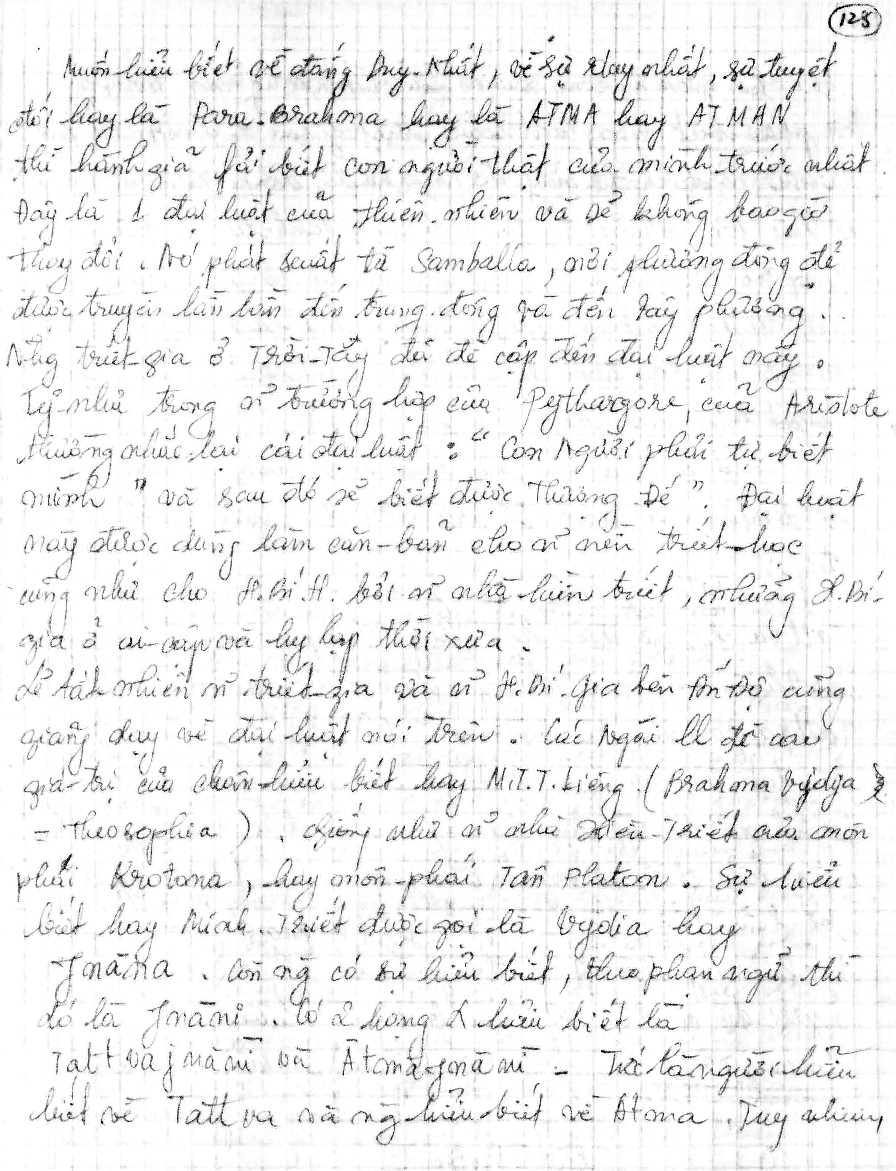 128
Muốn hiểu biết về đấng Duy-Nhất, về sự Nay nhất, sự tuyệt
đối hay là Para.Brahma hay là ATMA hay ATMAN
thì hành giã fải biết con người thật của mình trước nhất.
Đây là 1 đại luật cuã thiên.nhiên và sẻ không bao giờ
thay đổi. Nó phát suất từ Samballa, nơi phương đông để
được truyền lần lần đến trung.đông và đến Tây phương.
Nhg triết-gia ở Trời-Tây đã đề cập đến đại luật nầy.
Tỷ như trong n~ trường hợp của Pythargore, cuã Aristote
thường nhắc lại cái đại luật : " Con Người phải tự biết
mình " và sau đó sẽ biết được Thượng Đế ". Đại luật
nầy được dùng làm căn-bản cho n~ nền triết-học
cũng như cho H.Bí.H. bởi n~ nhà hiền triết, những H.Bí-
gia ở ai-cập và hy lạp thời xưa.
Lẻ tất nhiên n~ triết-gia và n~ H.Bí.Gia bên Ấn Độ cũng
giãng dạy về đại luật nói trên. Các Ngài đề cao
giá-trị của chơn-hiểu biết hay M.T.T.Liêng (Brahma Vydya
= Theosophia). Giống như n~ nhà Hiền-Triết của môn
phái Krotona, hay môn-phái Tân Platon. Sự hiểu
biết hay Minh.Triết được gọi là Vydia hay
Jnāna. Còn ng̃ có sự hiểu biết, theo phạn ngữ thì
đó là Jnāni. Có 2 hạng hiểu biết là
Tattvajnānī và Ātmajnānī - Tức là người hiểu
biết về Tattva và ng̃ hiểu biết về Atma. Tuy nhiên,